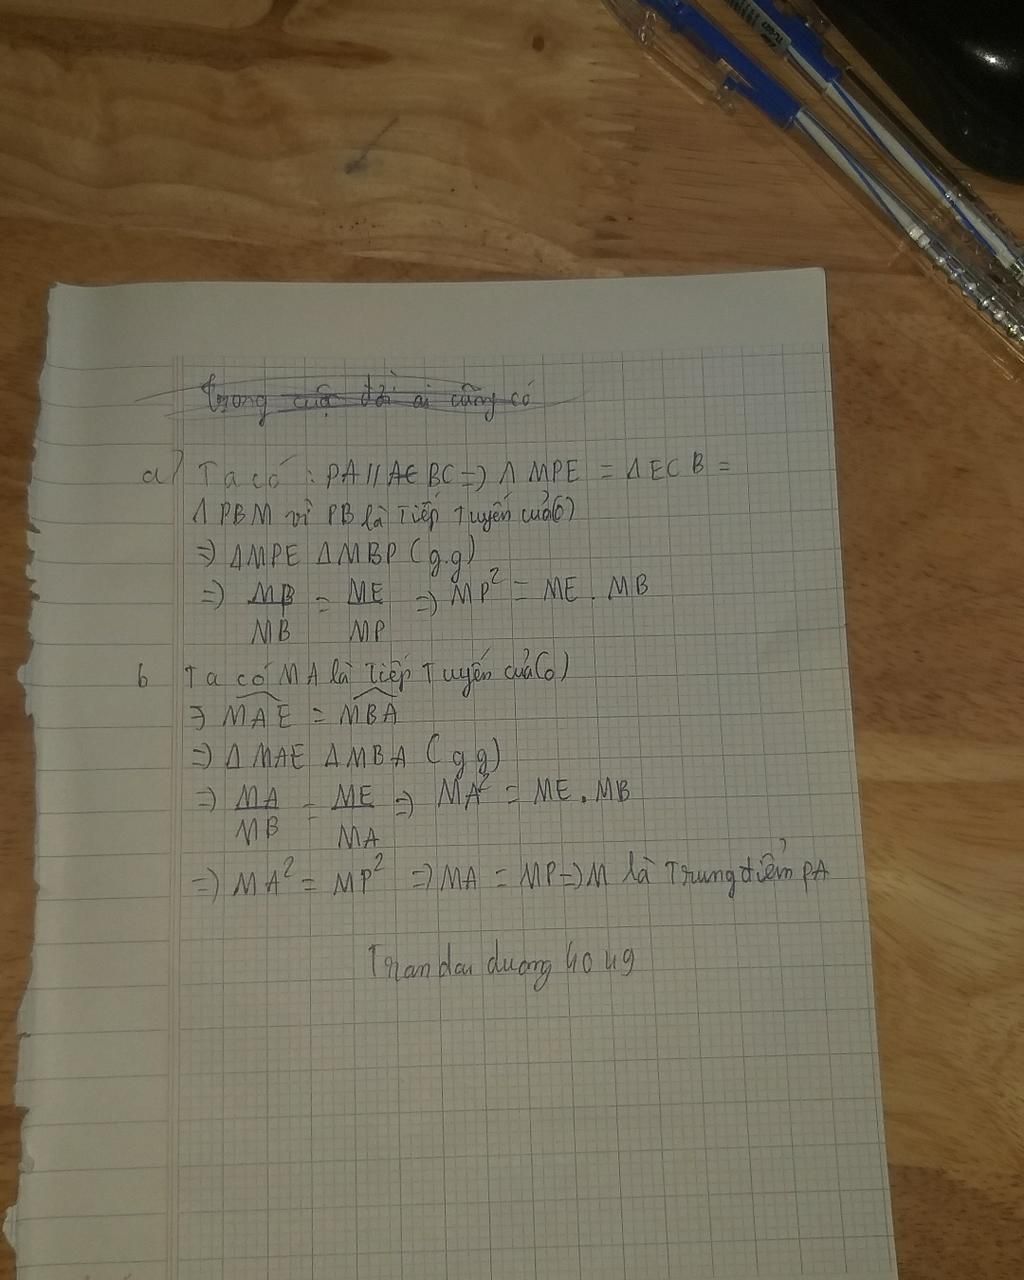 Trong cuộc đời ai cũng có
a) Ta có : PA // BC => Δ MPE = Δ ECB =
Δ PBM vì PB là tiếp tuyến của (O)
=> ΔMPE ΔMBP (g.g)
=> MP/MB = ME/MP => MP² = ME . MB
b Ta có MA là tiếp tuyến của (O)
=> MAE = MBA
=> Δ MAE ΔMBA (g g)
=> MA/MB = ME/MA => MA² = ME . MB
=> MA² = MP² => MA = MP => M là trung điểm PA
duong